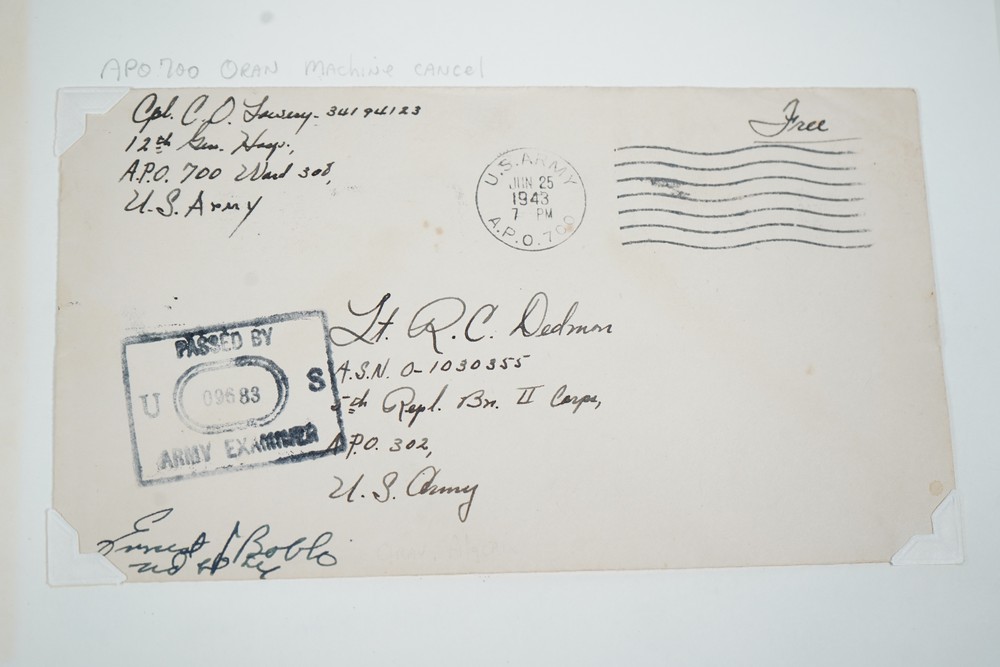 APO 700 ORAN MACHINE CANCEL
Cpl. C. D. Lowery - 34194123
12th Gen. Hosp.,
A.P.O. 700 Ward 308,
U.S. Army
Free
U.S. ARMY
JUN 25
1943
7 PM
A.P.O. 700
Lt. R.C. Dedmon
A.S.N. O-1030355
5th Repl. Bn. II Corps,
A.P.O. 302,
U.S. Army
PASSED BY
U 09683 S
ARMY EXAMINER
Ernest